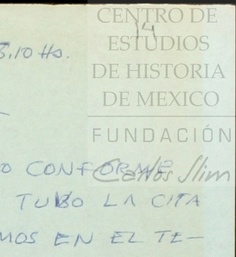 CENTRO DE
14
ESTUDIOS
8.10 Hs.
DE HISTORIA
DE MEXICO
FUNDACIÓN
O CONFORME
Carlos Slim
TUVO LA CITA
MOS EN EL TE-